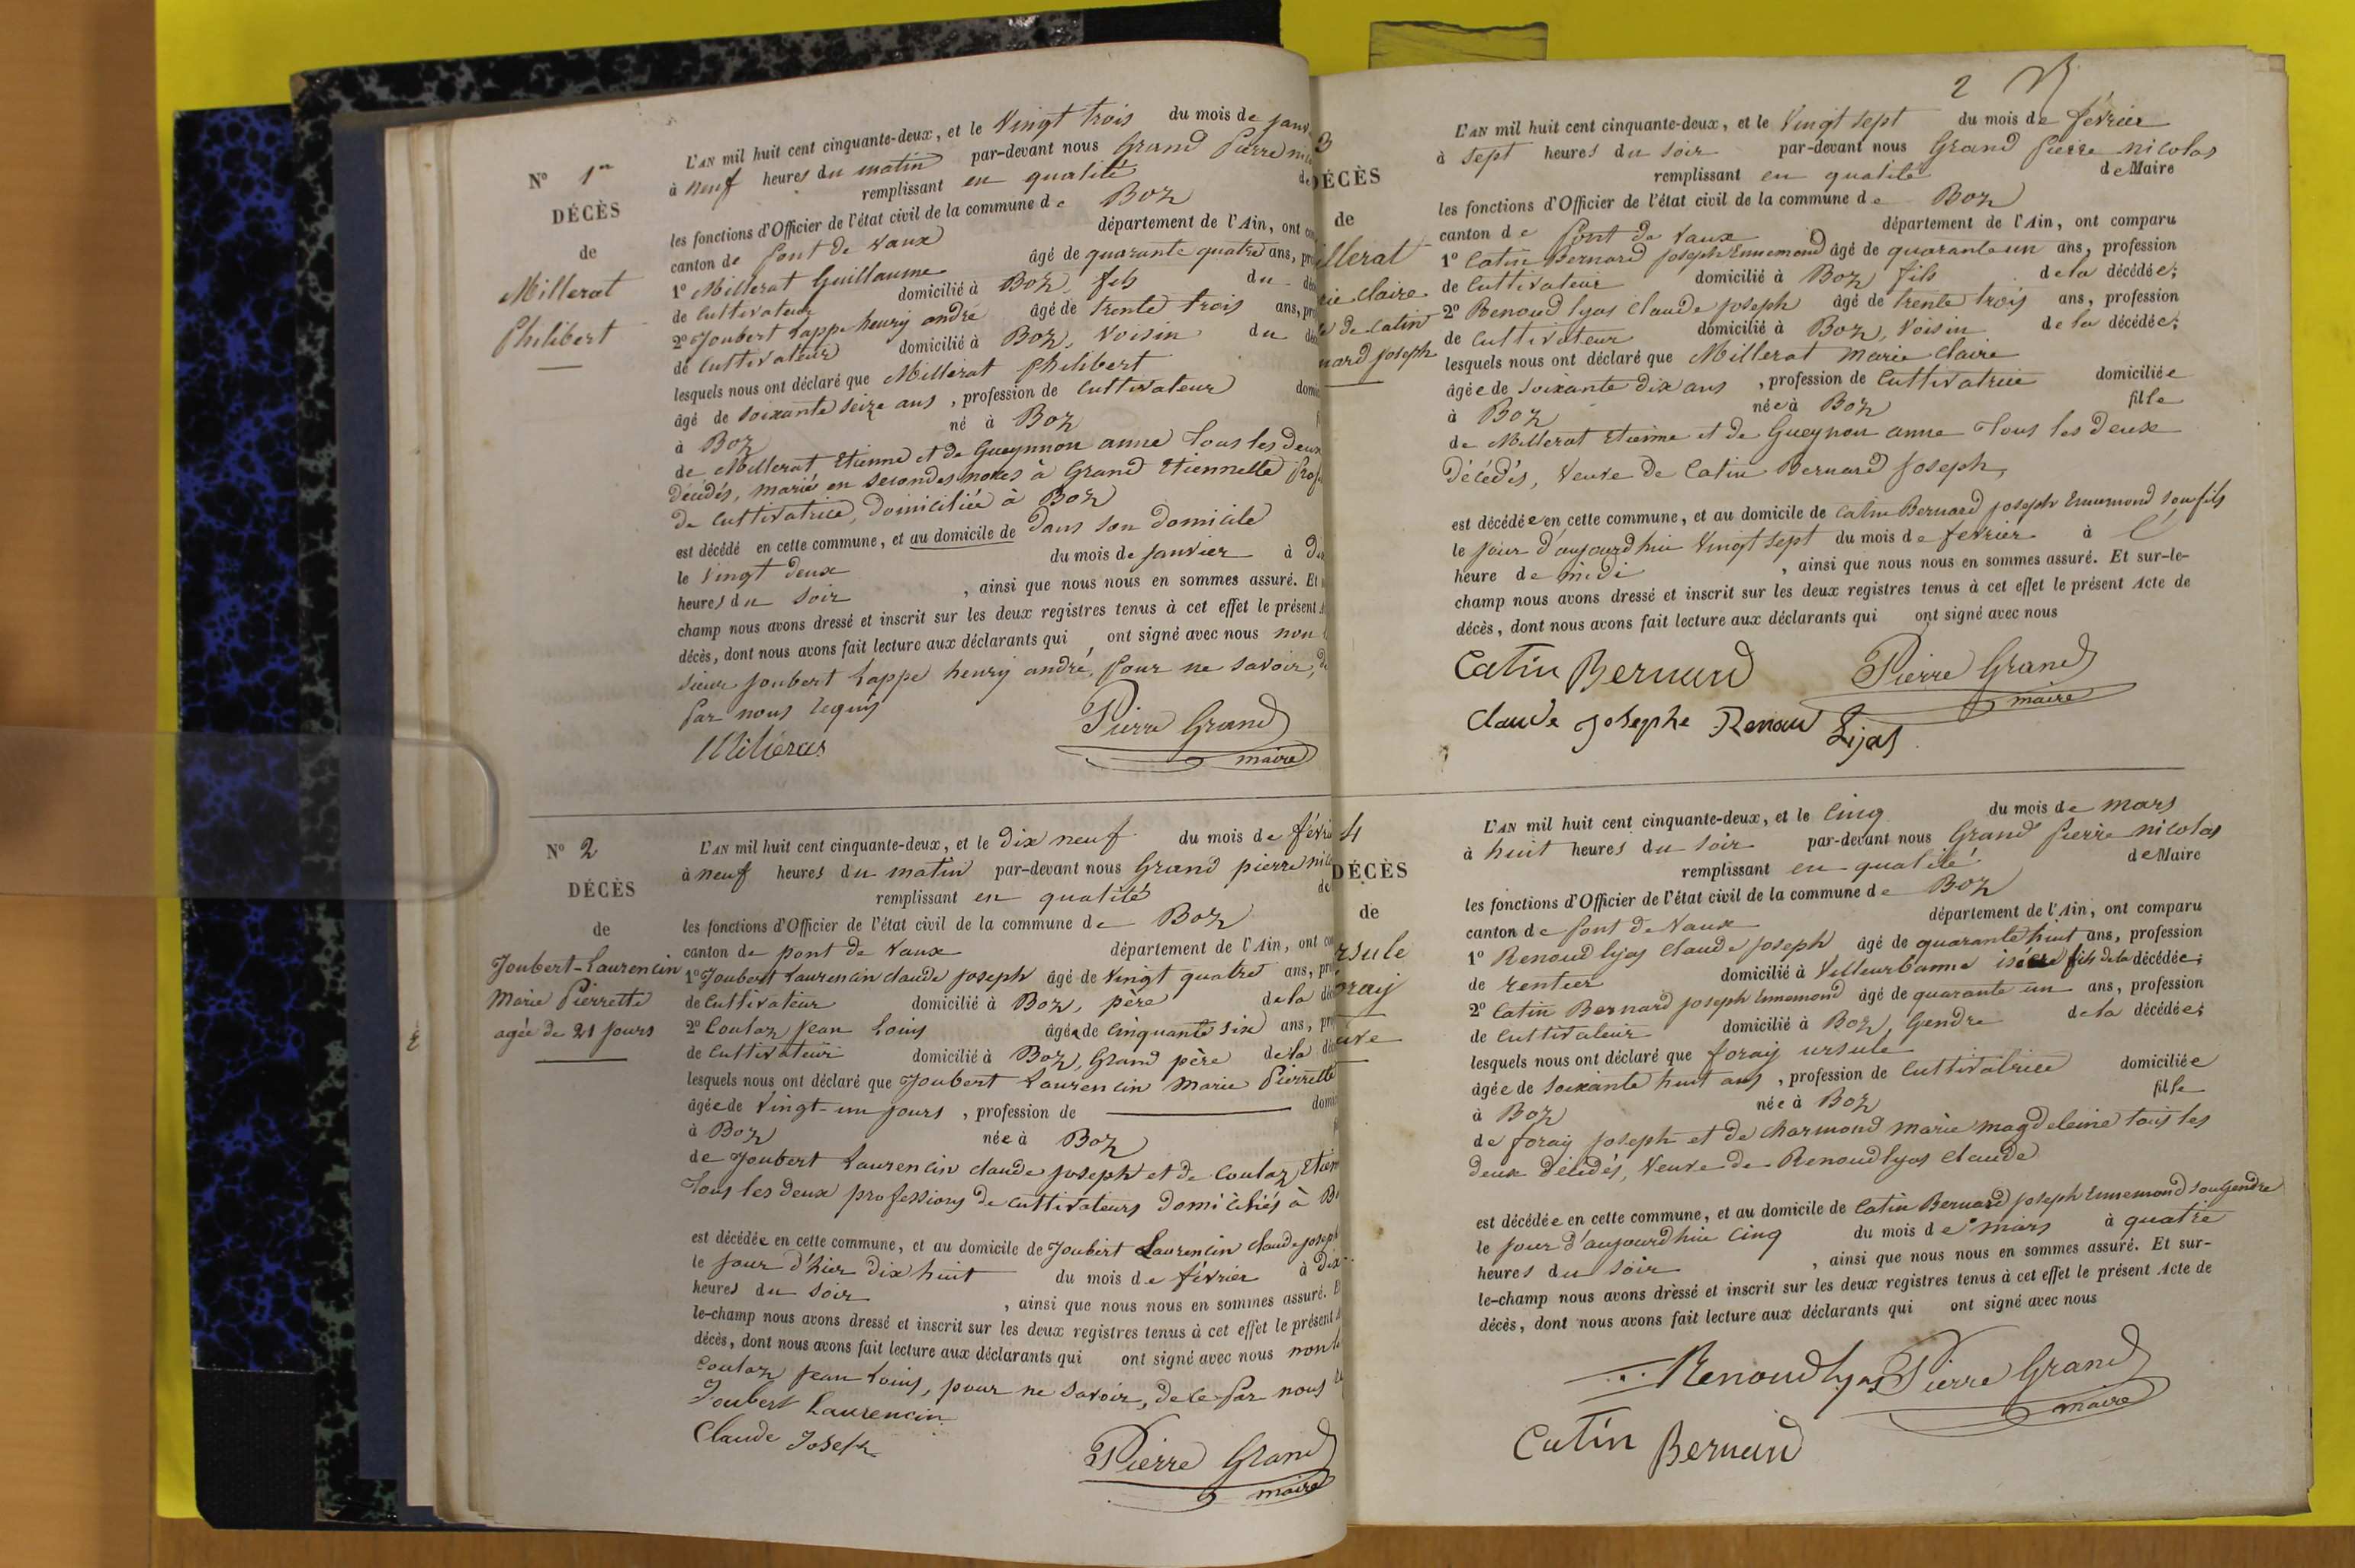 N° 1er
DÉCÈS
de
Millerat
Philibert
L'AN mil huit cent cinquante-deux, et le Vingt trois du mois de janv
à neuf heures du matin par-devant nous Grand Pierre nic
remplissant en qualité de
les fonctions d'Officier de l'état civil de la commune de Boz
canton de Pont de Vaux département de l'Ain, ont co
1° Millerat Guillaume âgé de quarante quatre ans, pro
de Cultivateur domicilié à Boz, fils du dé
2° Joubert Lappe henry andré âgé de trente trois ans, pro
de Cultivateur domicilié à Boz, Voisin du dé
lesquels nous ont déclaré que Millerat Philibert
âgé de soixante seize ans, profession de Cultivateur domi
à Boz né à Boz f
de Millerat Etienne et de Gueynnon anne tous les deux
décédés, marié en secondes noces à Grand Etiennette Prof
de Cultivatrice, domiciliée à Boz
est décédé en cette commune, et au domicile de dans son domicile
le Vingt deux du mois de janvier à di
heures du soir, ainsi que nous nous en sommes assuré. Et
champ nous avons dressé et inscrit sur les deux registres tenus à cet effet le présent A
décès, dont nous avons fait lecture aux déclarants qui ont signé avec nous non
sieur Joubert Lappe henry andré, pour ne savoir, de
par nous requis
Pierre Grand
maire
N° 2
DÉCÈS
de
Joubert-Laurencin
Marie Pierrette
agée de 21 jours
L'AN mil huit cent cinquante-deux, et le dix neuf du mois de févri
à neuf heures du matin par-devant nous Grand pierre nico
remplissant en qualité de
les fonctions d'Officier de l'état civil de la commune de Boz
canton de pont de Vaux département de l'Ain, ont co
1° Joubert Laurencin claude joseph âgé de Vingt quatre ans, pro
de Cultivateur domicilié à Boz, père de la dé
2° Coulaz Jean Louis âgé de Cinquante six ans, pro
de Cultivateur domicilié à Boz, Grand père de la dé
lesquels nous ont déclaré que Joubert Laurencin Marie Pierrette
âgée de Vingt-un jours, profession de — domi
à Boz née à Boz f
de Joubert Laurencin claude joseph et de Coulaz Etien
tous les deux professions de cultivateurs domiciliés à Bo
est décédée en cette commune, et au domicile de Joubert Laurencin claude joseph
le jour d'hier dix huit du mois de février à dix
heures du soir, ainsi que nous nous en sommes assuré. E
le-champ nous avons dressé et inscrit sur les deux registres tenus à cet effet le présent A
décès, dont nous avons fait lecture aux déclarants qui ont signé avec nous non le
Coulaz Jean Louis, pour ne savoir, de ce par nous
Joubert Laurencin
Claude Joseph
Pierre Grand
maire
2
3
DÉCÈS
de
illerat
rie Claire
e de Catin
nard joseph
L'AN mil huit cent cinquante-deux, et le Vingt sept du mois de février
à sept heures du soir par-devant nous Grand Pierre nicolas
remplissant en qualité de Maire
les fonctions d'Officier de l'état civil de la commune de Boz
canton de Pont de Vaux département de l'Ain, ont comparu
1° Catin Bernard Joseph Ennemond âgé de quarante un ans, profession
de Cultivateur domicilié à Boz fils de la décédée;
2° Renoud lyas Claude joseph âgé de trente trois ans, profession
de Cultivateur domicilié à Boz, Voisin de la décédée;
lesquels nous ont déclaré que Millerat Marie Claire
âgée de soixante dix ans, profession de Cultivatrice domiciliée
à Boz née à Boz fille
de Millerat Etienne et de Gueynon anne tous les deux
décédés, Veuve de Catin Bernard Joseph,
est décédée en cette commune, et au domicile de Catin Bernard joseph Ennemond son fils
le jour d'aujourdhui Vingt sept du mois de fevrier à l'
heure de midi, ainsi que nous nous en sommes assuré. Et sur-le-
champ nous avons dressé et inscrit sur les deux registres tenus à cet effet le présent Acte de
décès, dont nous avons fait lecture aux déclarants qui ont signé avec nous
Catin Bernard Pierre Grand
maire
Claude Josephe Renoud Lijas
4
DÉCÈS
de
rsule
oray
uve
L'AN mil huit cent cinquante-deux, et le Cinq du mois de mars
à huit heures du soir par-devant nous Grand Pierre nicolas
remplissant en qualité de Maire
les fonctions d'Officier de l'état civil de la commune de Boz
canton de Pont de Vaux département de l'Ain, ont comparu
1° Renoud lyas Claude joseph âgé de quarante huit ans, profession
de rentier domicilié à Villeurbanne isère fils de la décédée;
2° Catin Bernard joseph Ennemond âgé de quarante un ans, profession
de Cultivateur domicilié à Boz, Gendre de la décédée;
lesquels nous ont déclaré que foray ursule
âgée de soixante huit ans, profession de Cultivatrice domiciliée
à Boz née à Boz fille
de foray joseph et de Charmond marie magdeleine tous les
deux décédés, Veuve de Renoud lyas Claude
est décédée en cette commune, et au domicile de Catin Bernard joseph Ennemond son Gendre
le jour d'aujourdhui Cinq du mois de mars à quatre
heures du soir, ainsi que nous nous en sommes assuré. Et sur-
le-champ nous avons dressé et inscrit sur les deux registres tenus à cet effet le présent Acte de
décès, dont nous avons fait lecture aux déclarants qui ont signé avec nous
Renoud lyas Pierre Grand
maire
Catin Bernard